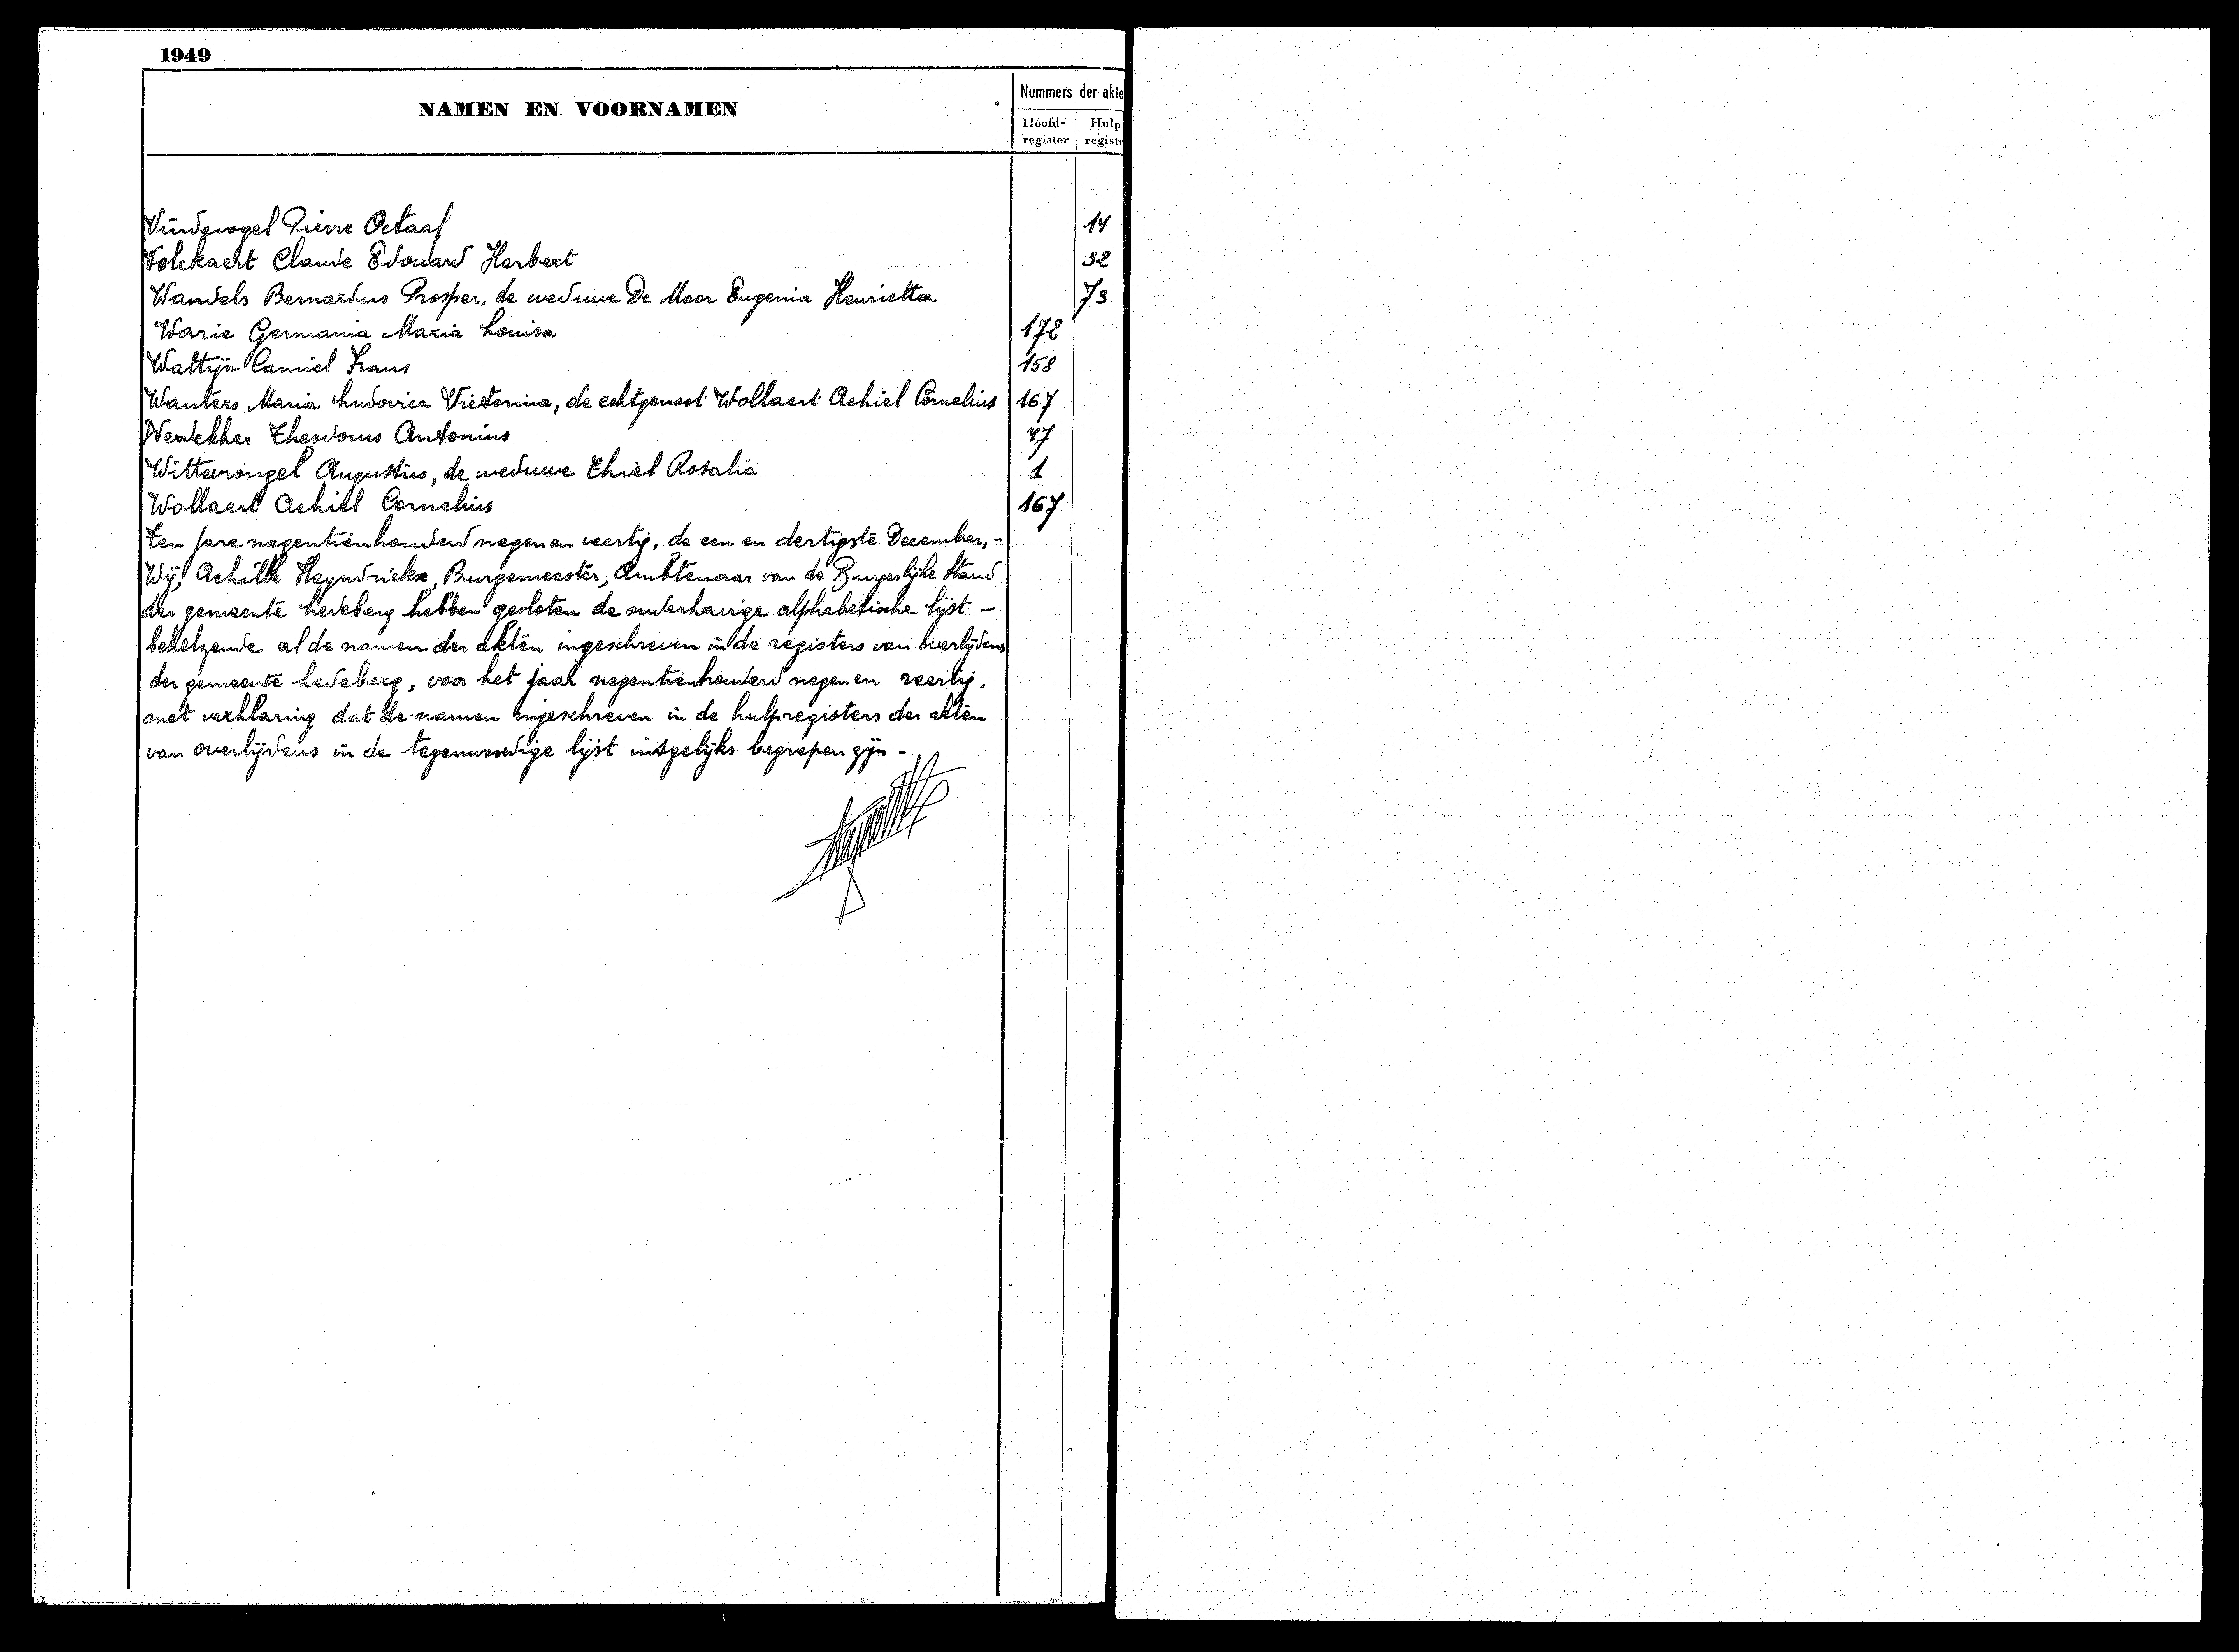 1949
NAMEN EN VOORNAMEN
Nummers der akte
Hoofd-register
Hulp-registe
Vindevogel Pierre Octaaf 14
Volckaert Claude Edouard Herbert 32
Wandels Bernardus Prosper, de weduwe De Moor Eugenia Henrietta 73
Warie Germania Maria Louisa 172
Wattijn Camiel Frans 158
Wauters Maria Ludovica Victorina, de echtgenoot Wollaert Achiel Cornelius 167
Werdekker Theodorus Antonius
Wittevrongel Augustus, de weduwe Thiel Rosalia 1
Wollaert Achiel Cornelius 167
Ten jare negentienhonderd negen en veertig, de een en dertigste December, -
Wij, Achille Heyndrickx, Burgemeester, Ambtenaar van de Burgerlijke Stand
der gemeente Ledeberg hebben gesloten de onderhavige alphabetische lijst -
behelzende al de namen der akten ingeschreven in de registers van overlijdens
der gemeente Ledeberg, voor het jaar negentienhonderd negen en veertig.
met verklaring dat de namen ingeschreven in de hulpregisters der akten
van overlijdens in de tegenwoordige lijst insgelijks begrepen zijn -